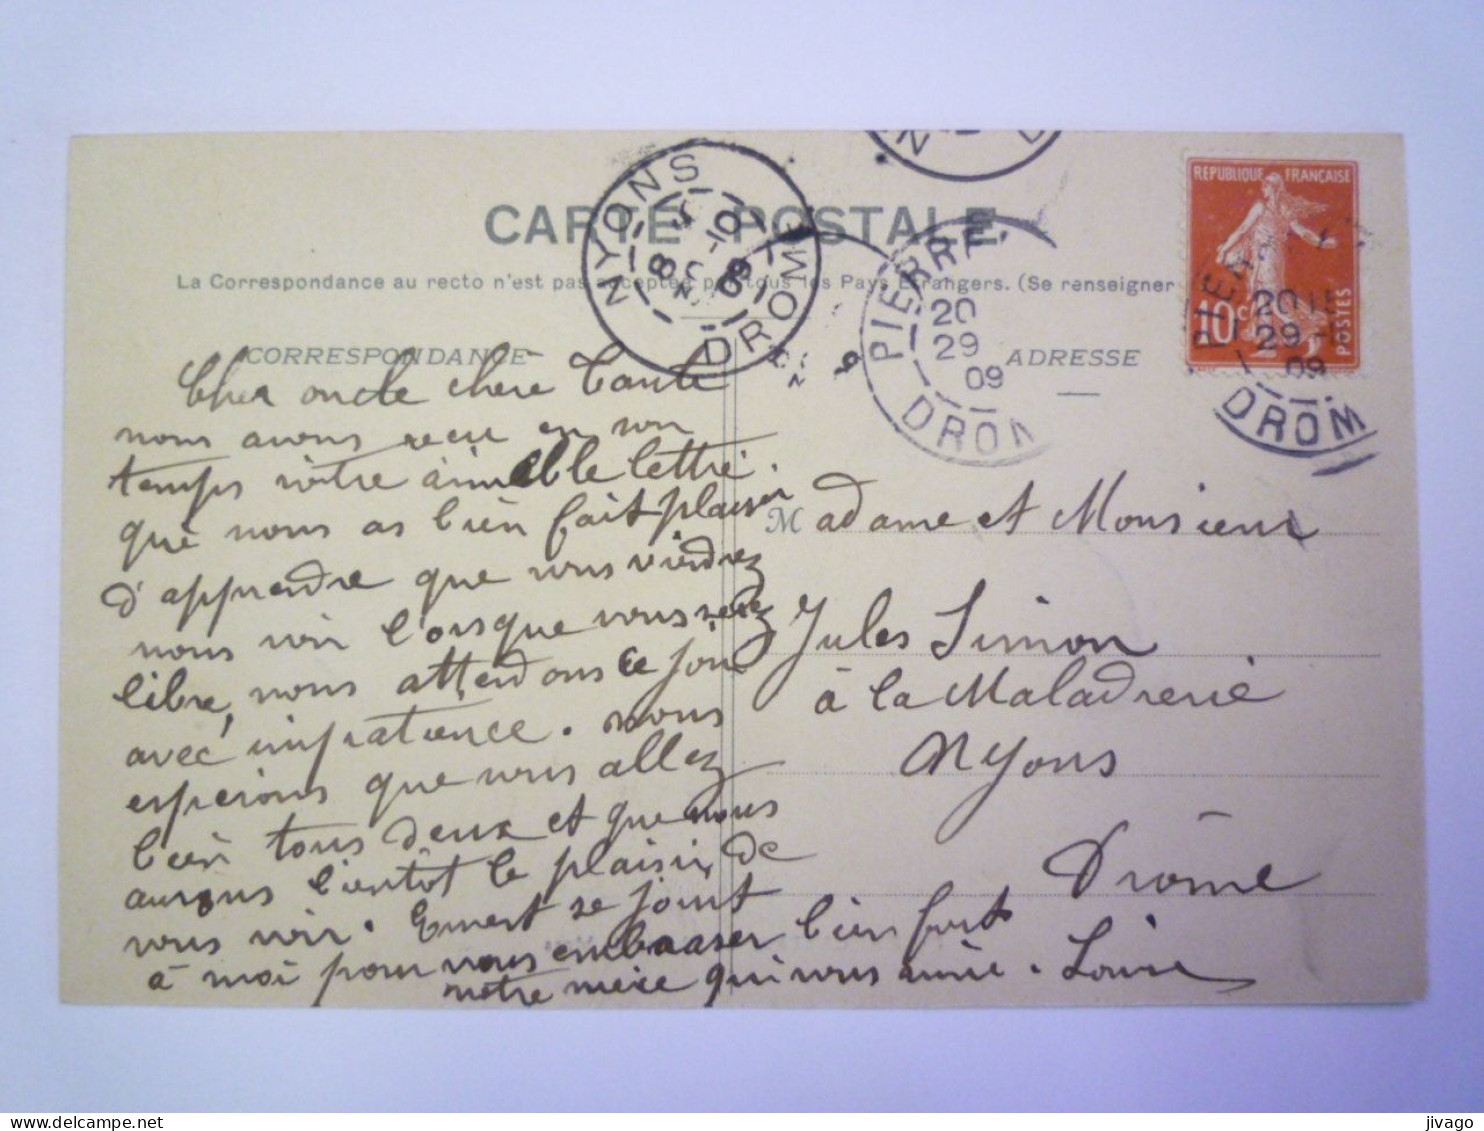 CARTE POSTALE
La Correspondance au recto n'est pas acceptée par tous les Pays Etrangers. (Se renseigner
CORRESPONDANCE
ADRESSE
NYONS
DROME
PIERRE
20
29
09
DROM
REPUBLIQUE FRANÇAISE
10c
POSTES
20
29
09
DROM
Cher oncle chère Tante
nous avons reçu en son
temps votre aimable lettre
que nous as bien fait plaisir
d'apprendre que vous viendrez
nous voir lorsque vous serez
libre, nous attendons ce jour
avec impatience. nous
esperons que vous allez
bien tous deux et que nous
aurons bientôt le plaisir de
vous voir. Ernest se joint
à moi pour vous embrasser bien fort
notre mère qui vous aime. Louise
Madame et Monsieur
Jules Simon
à la Maladrerie
Nyons
Drôme
jivago